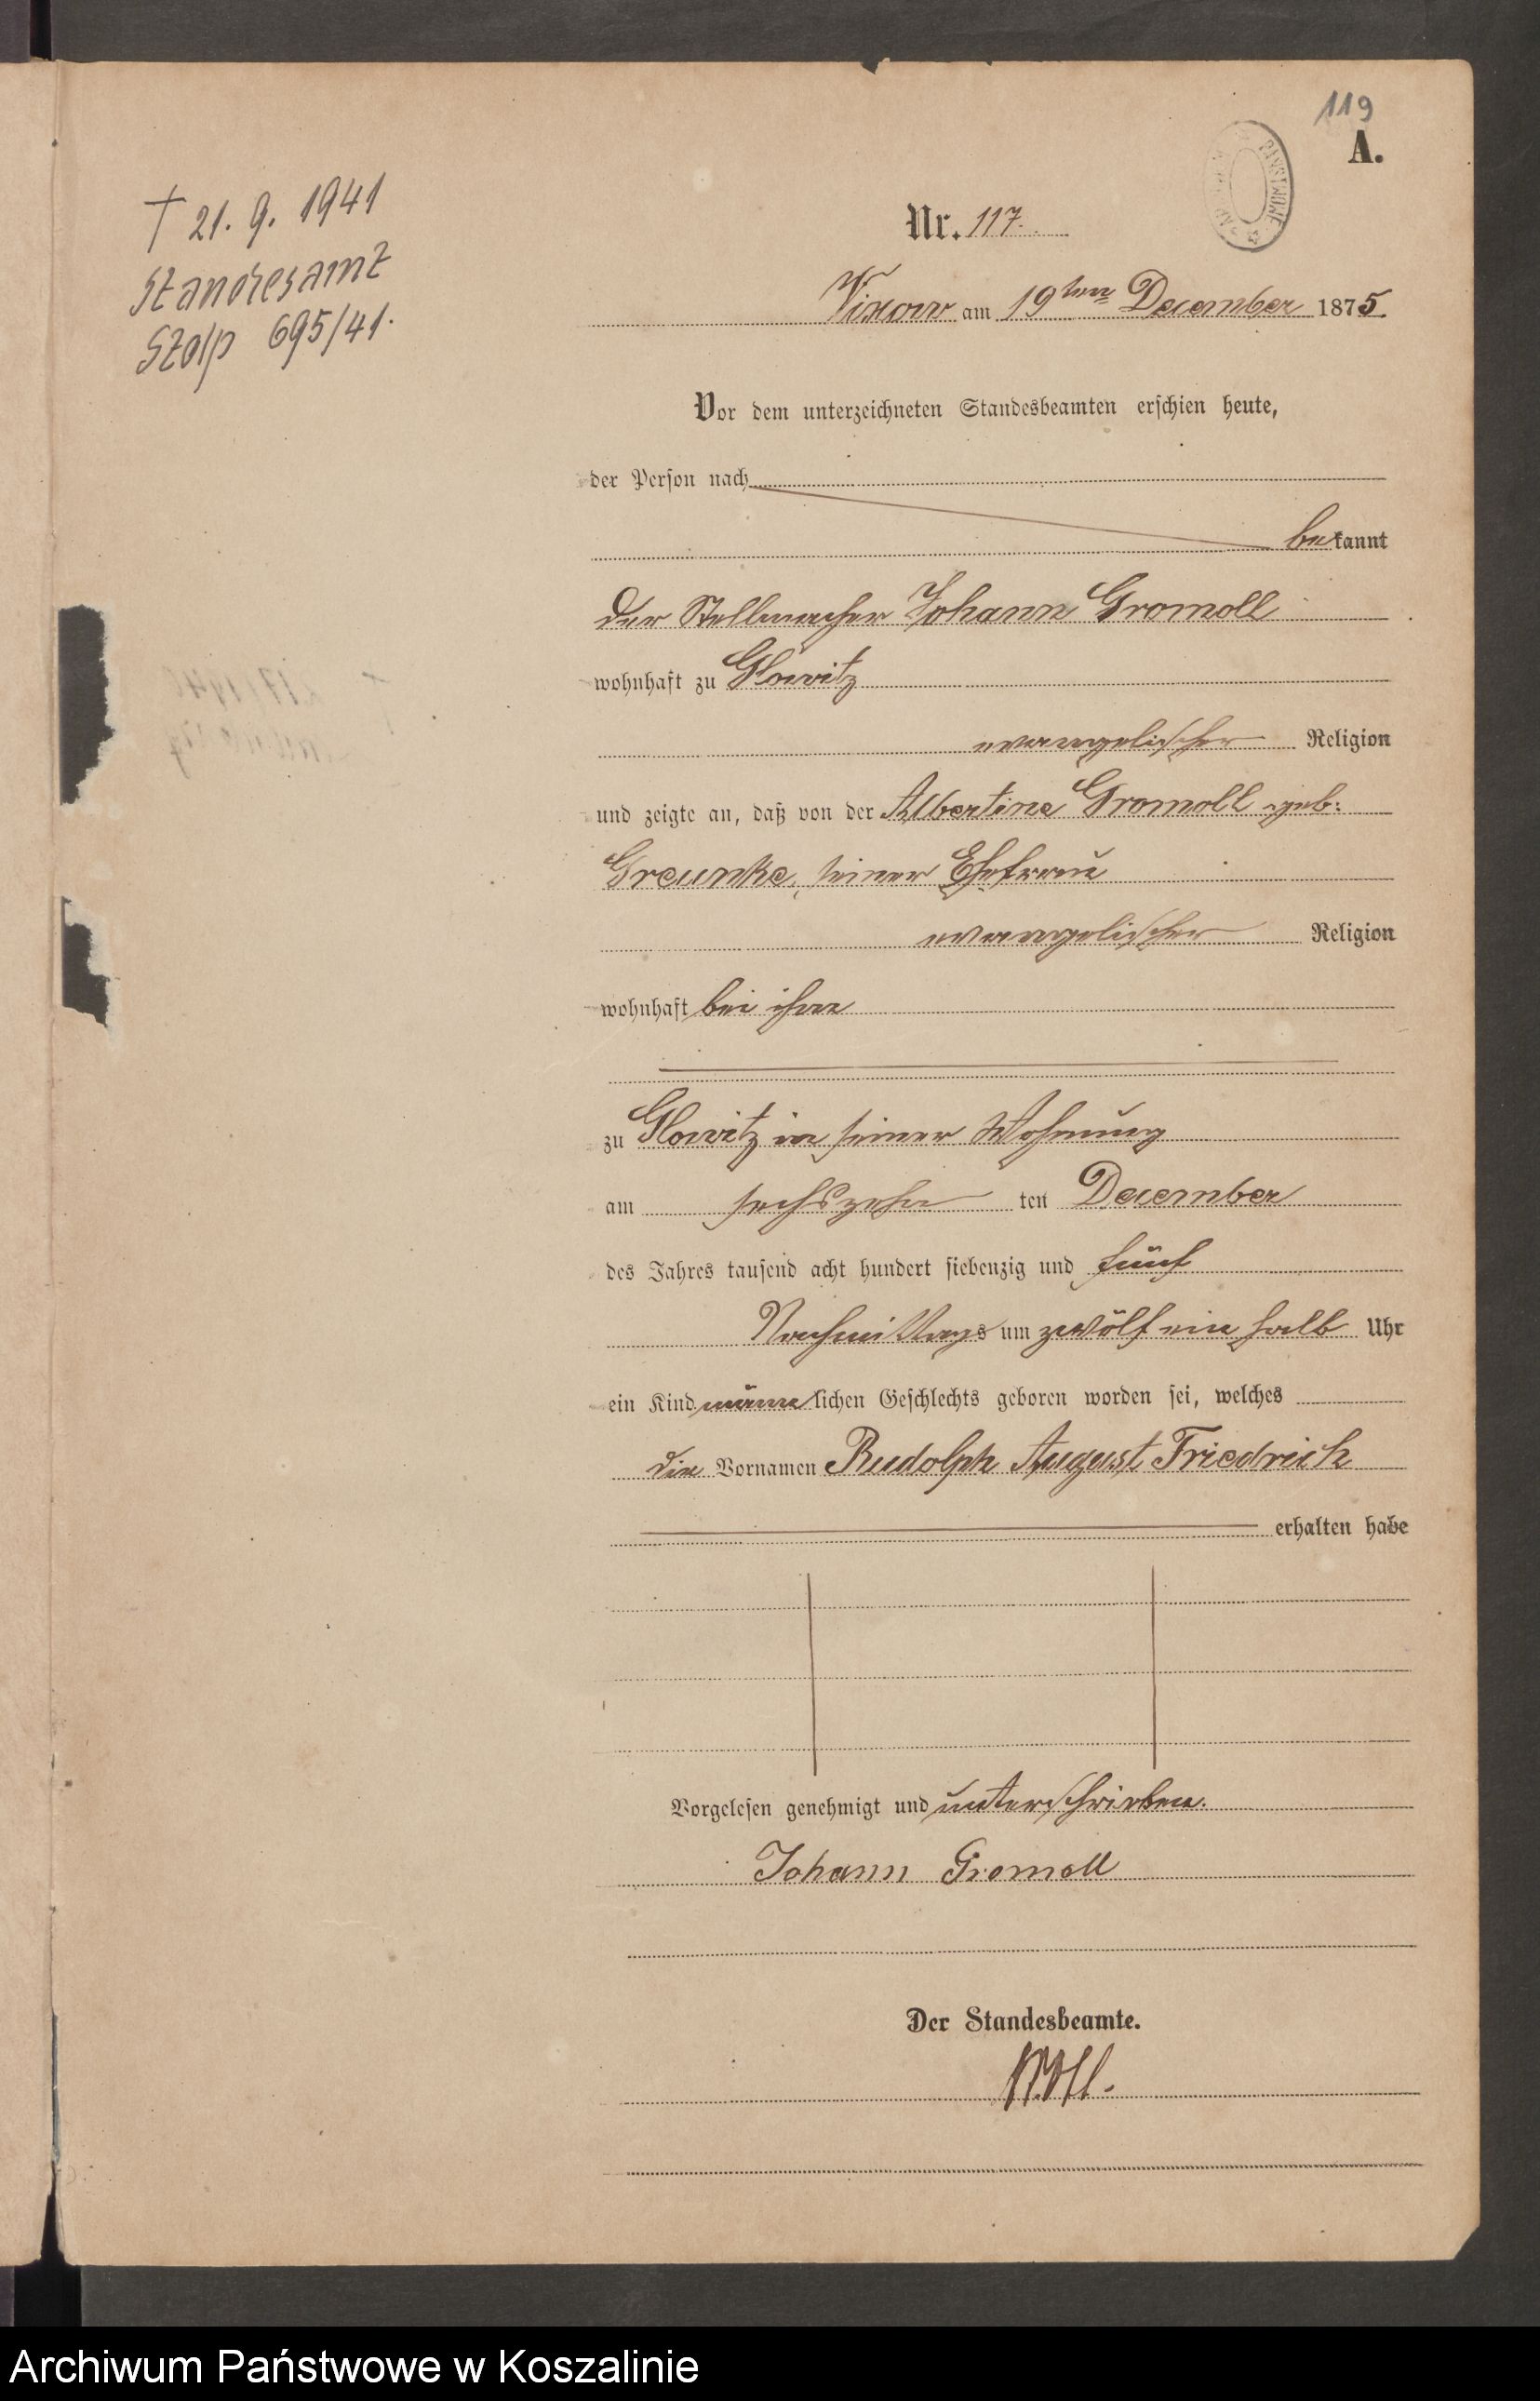 119
A.
† 21. 9. 1941
Standesamt
Stolp 695/41.
Nr. 117.
Vixow am 19ten December 1875.
Vor dem unterzeichneten Standesbeamten erschien heute,
der Person nach
bekannt
der Stellmacher Johann Gromoll
wohnhaft zu Glowitz
evangelischer Religion
und zeigte an, daß von der Albertine Gromoll geb:
Greunke, seiner Ehefrau
evangelischer Religion
wohnhaft bei ihm
zu Glowitz in seiner Wohnung
am sechszehn ten December
des Jahres tausend acht hundert siebenzig und fünf
Nachmittags um zwölf ein halb Uhr
ein Kind männlichen Geschlechts geboren worden sei, welches
die Vornamen Rudolph August Friedrich
erhalten habe
Vorgelesen genehmigt und unterschrieben.
Johann Gromoll
Der Standesbeamte.
Archiwum Państwowe w Koszalinie